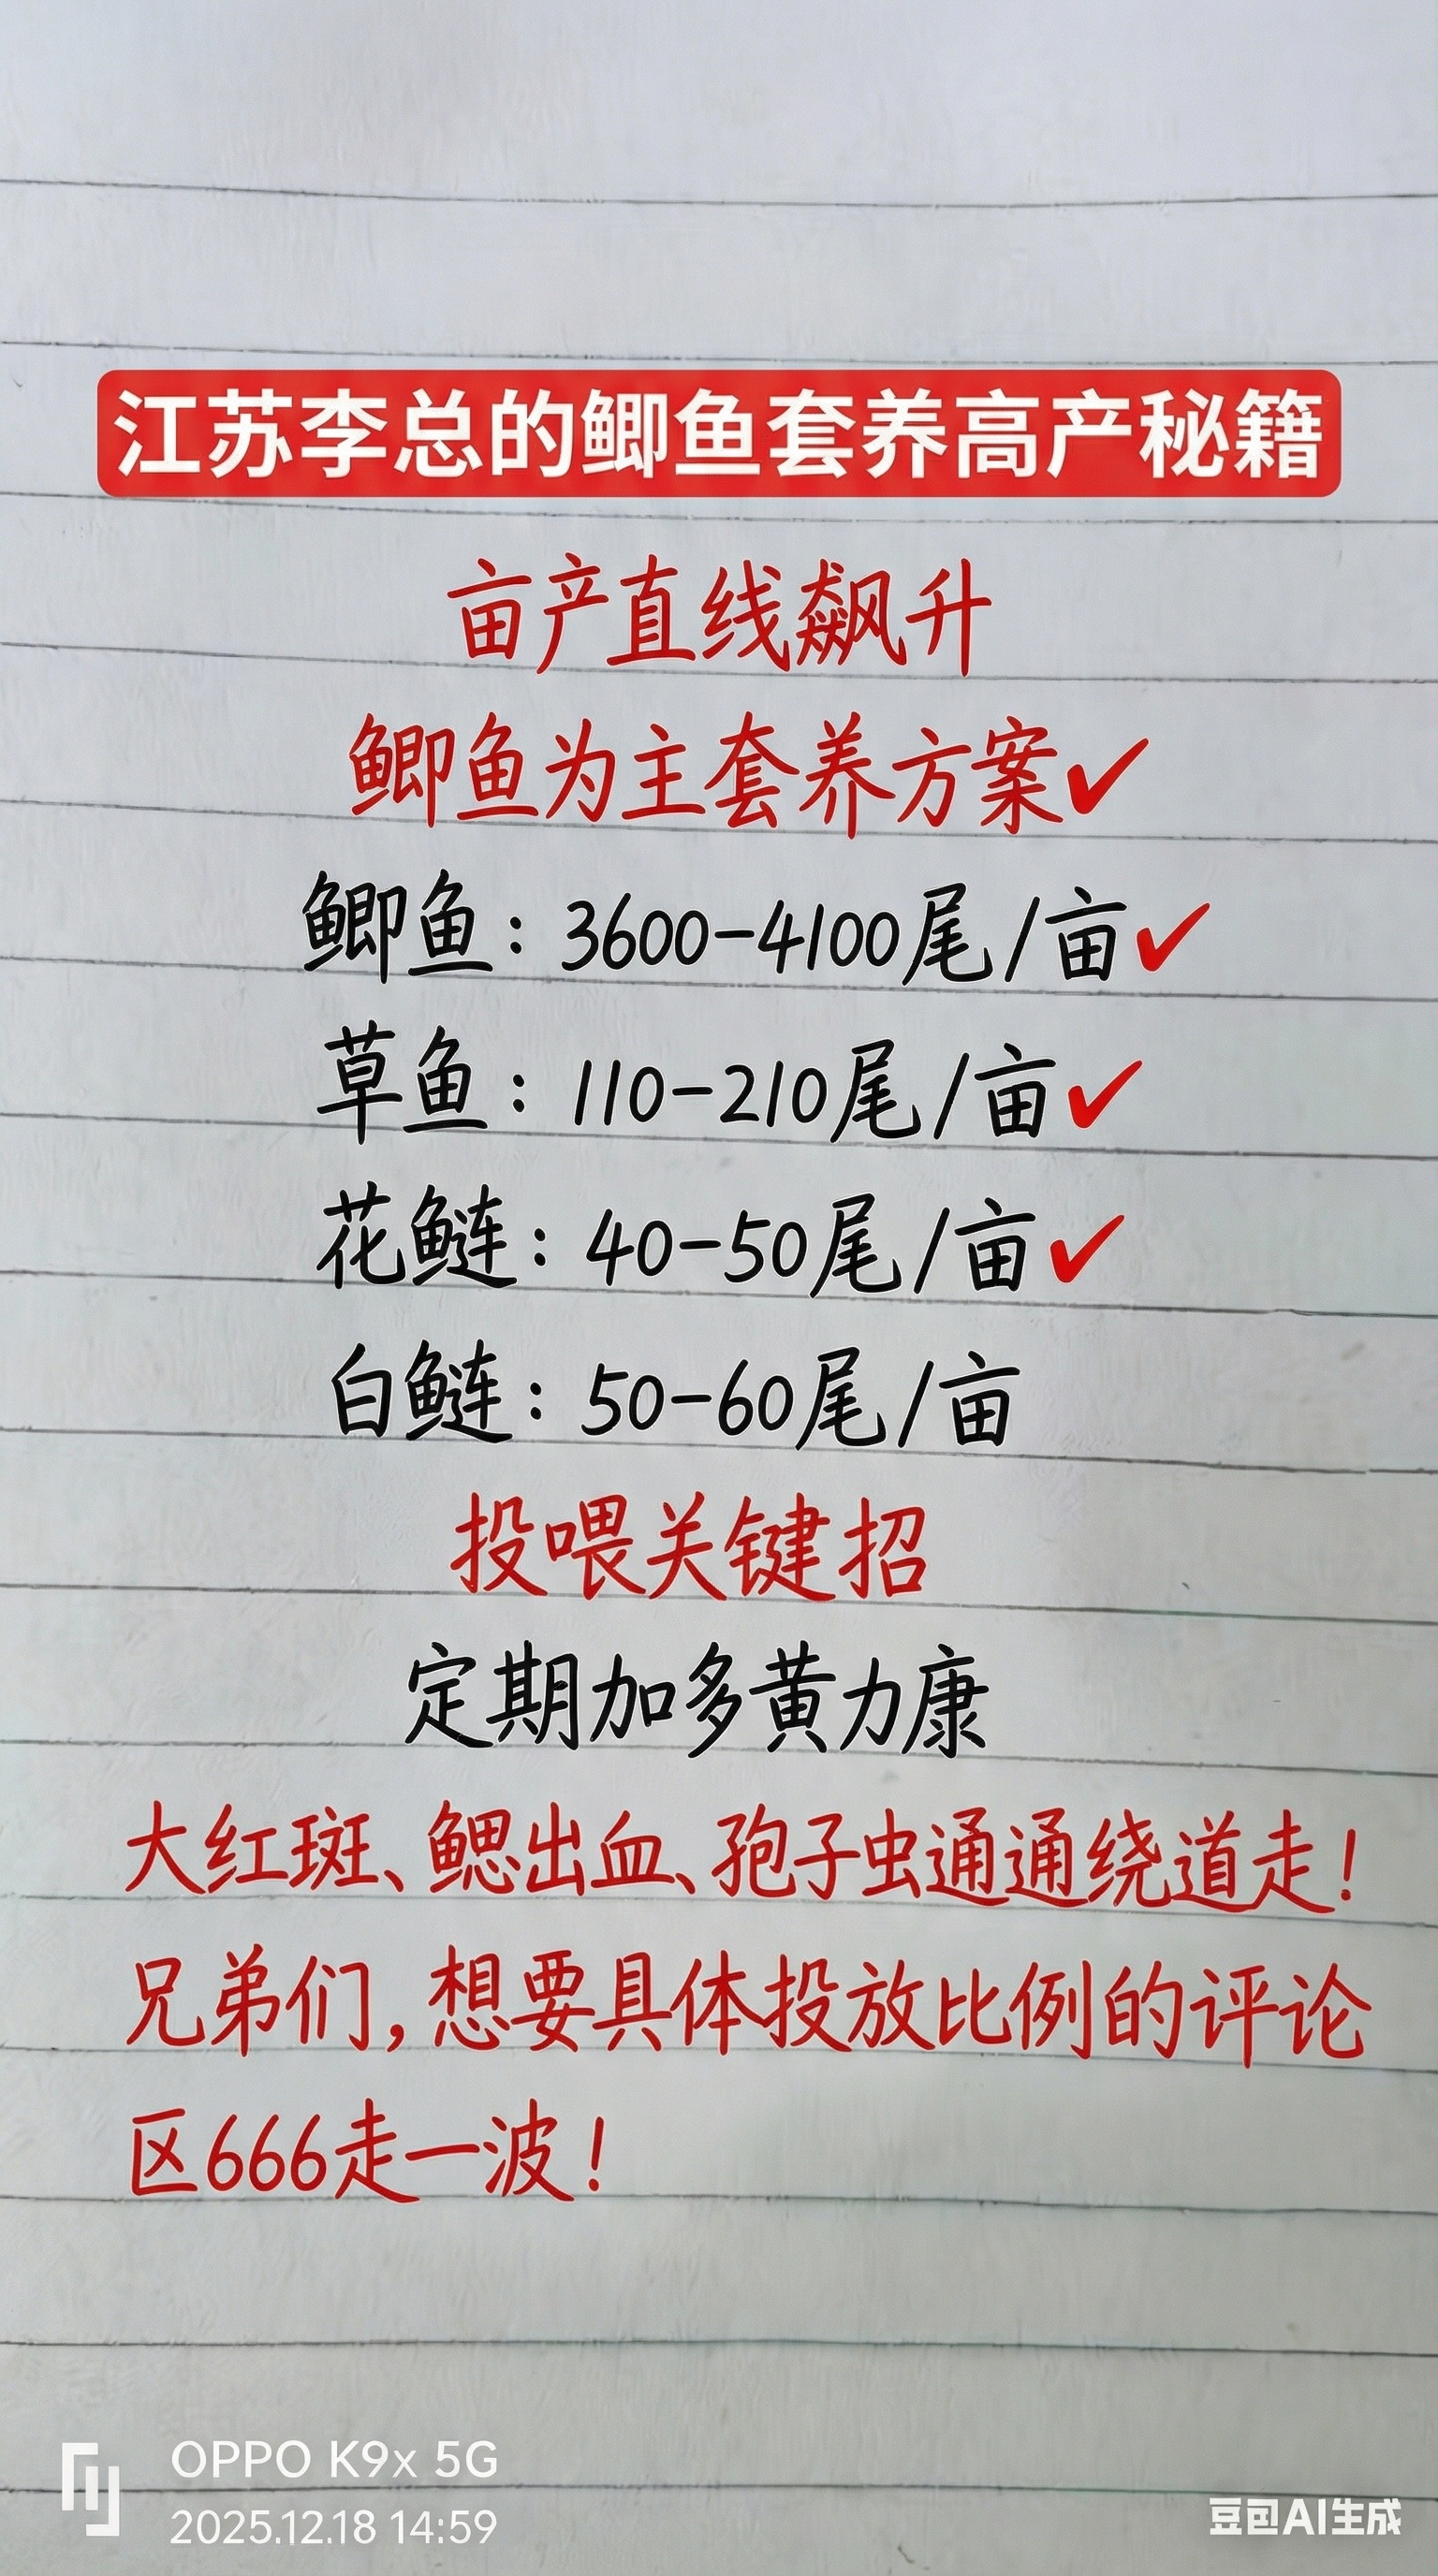 江苏李总的鲫鱼套养高产秘籍
亩产直线飙升
鲫鱼为主套养方案✓
鲫鱼：3600-4100尾/亩✓
草鱼：110-210尾/亩✓
花鲢：40-50尾/亩✓
白鲢：50-60尾/亩
投喂关键招
定期加多黄力康
大红斑、鳃出血、孢子虫通通绕道走！
兄弟们，想要具体投放比例的评论
区666走一波！
OPPO K9x 5G
2025.12.18 14:59
豆包AI生成